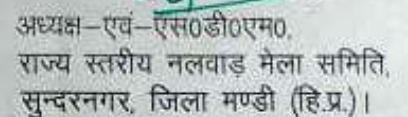 अध्यक्ष-एवं-एस०डी०एम०,
राज्य स्तरीय नलवाड़ मेला समिति,
सुन्दरनगर, जिला मण्डी (हि.प्र.)।